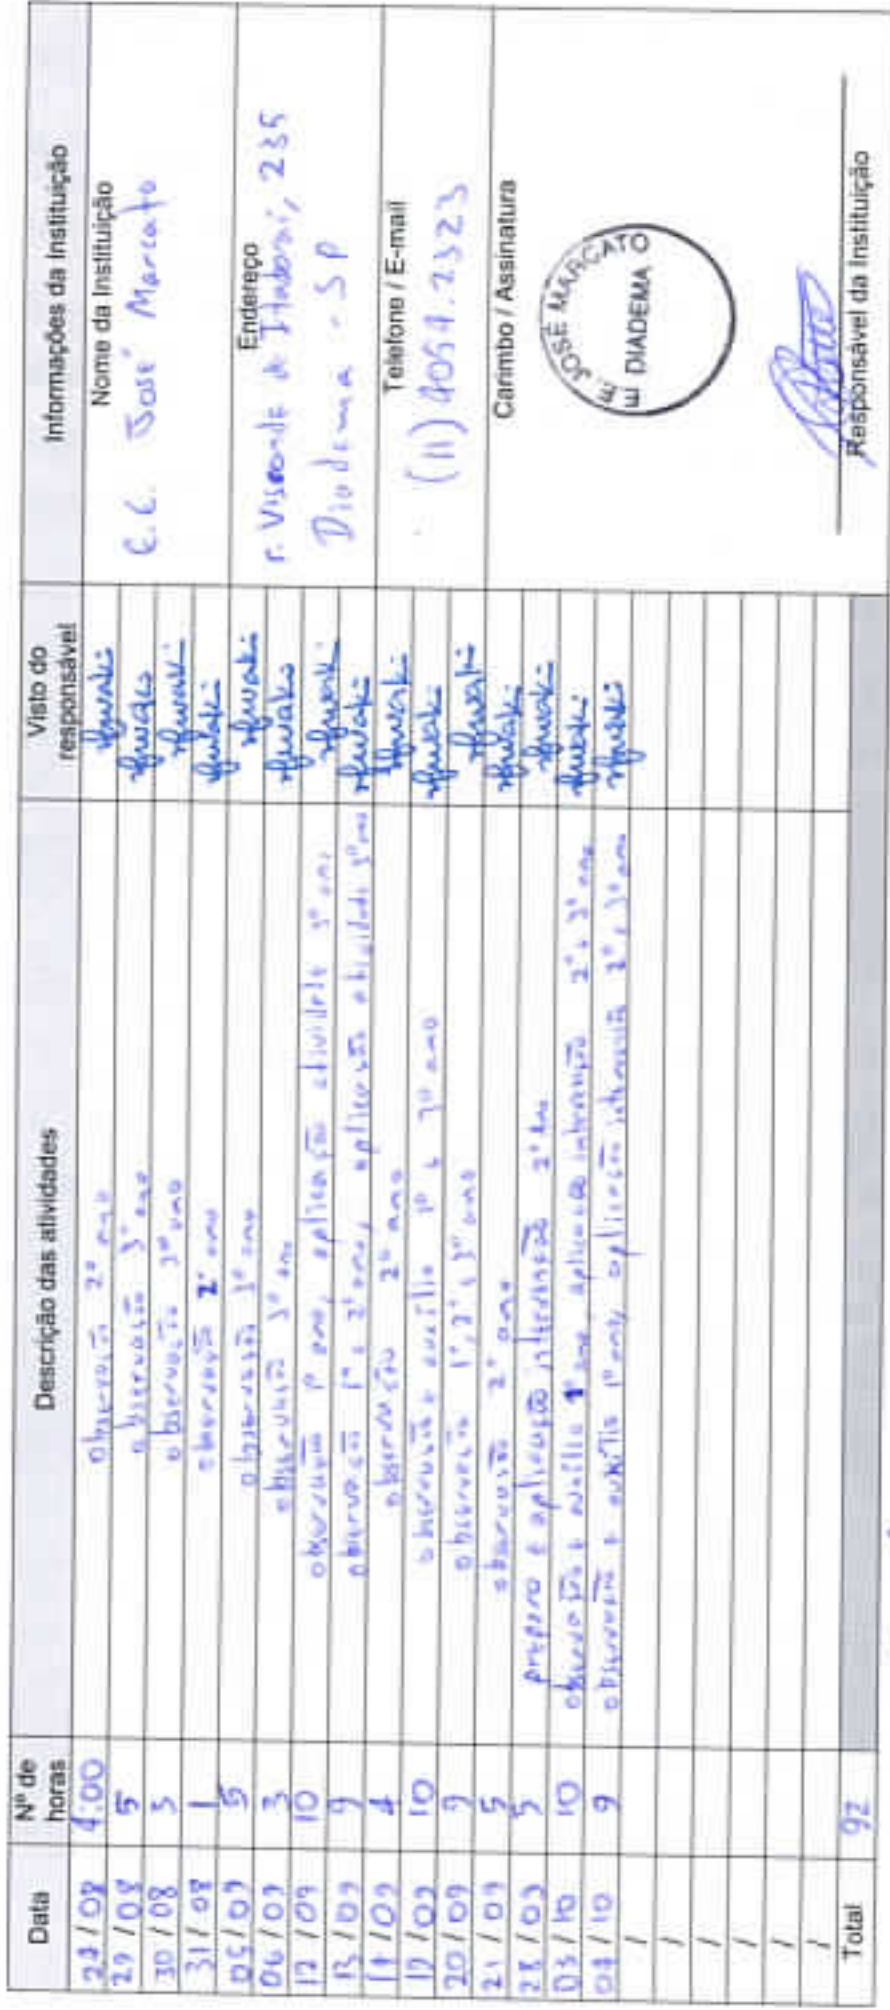 Data Nº de horas Descrição das atividades Visto do responsável Informações da Instituição
28/08 4:00 observação 2º ano
29/08 5 observação 3º ano
30/08 3 observação 3º ano
31/08 1 observação 2º ano
05/09 5 observação 3º ano
06/09 3 observação 3º ano
12/09 10 observação 1º ano, aplicação atividade 3º ano
13/09 9 observação 1º e 2º ano, aplicação atividade 3º ano
14/09 4 observação 2º ano
10 observação e auxílio 1º e 3º ano
20/09 9 observação 1º, 2º e 3º ano
21/09 5 observação 2º ano
28/09 5 preparo e aplicação intervenção 2º ano
03/10 10 observação e auxílio 1º ano, aplicação intervenção 2º e 3º ano
04/10 9 observação e auxílio 1º ano, aplicação intervenção 2º e 3º ano
Total 92
Nome da Instituição
E.E. José Marcato
Endereço
r. Visconde de Itaboraí, 235
Diadema - SP
Telefone / E-mail
(11) 4054.2323
Carimbo / Assinatura
E. JOSÉ MARCATO
DIADEMA
Responsável da Instituição